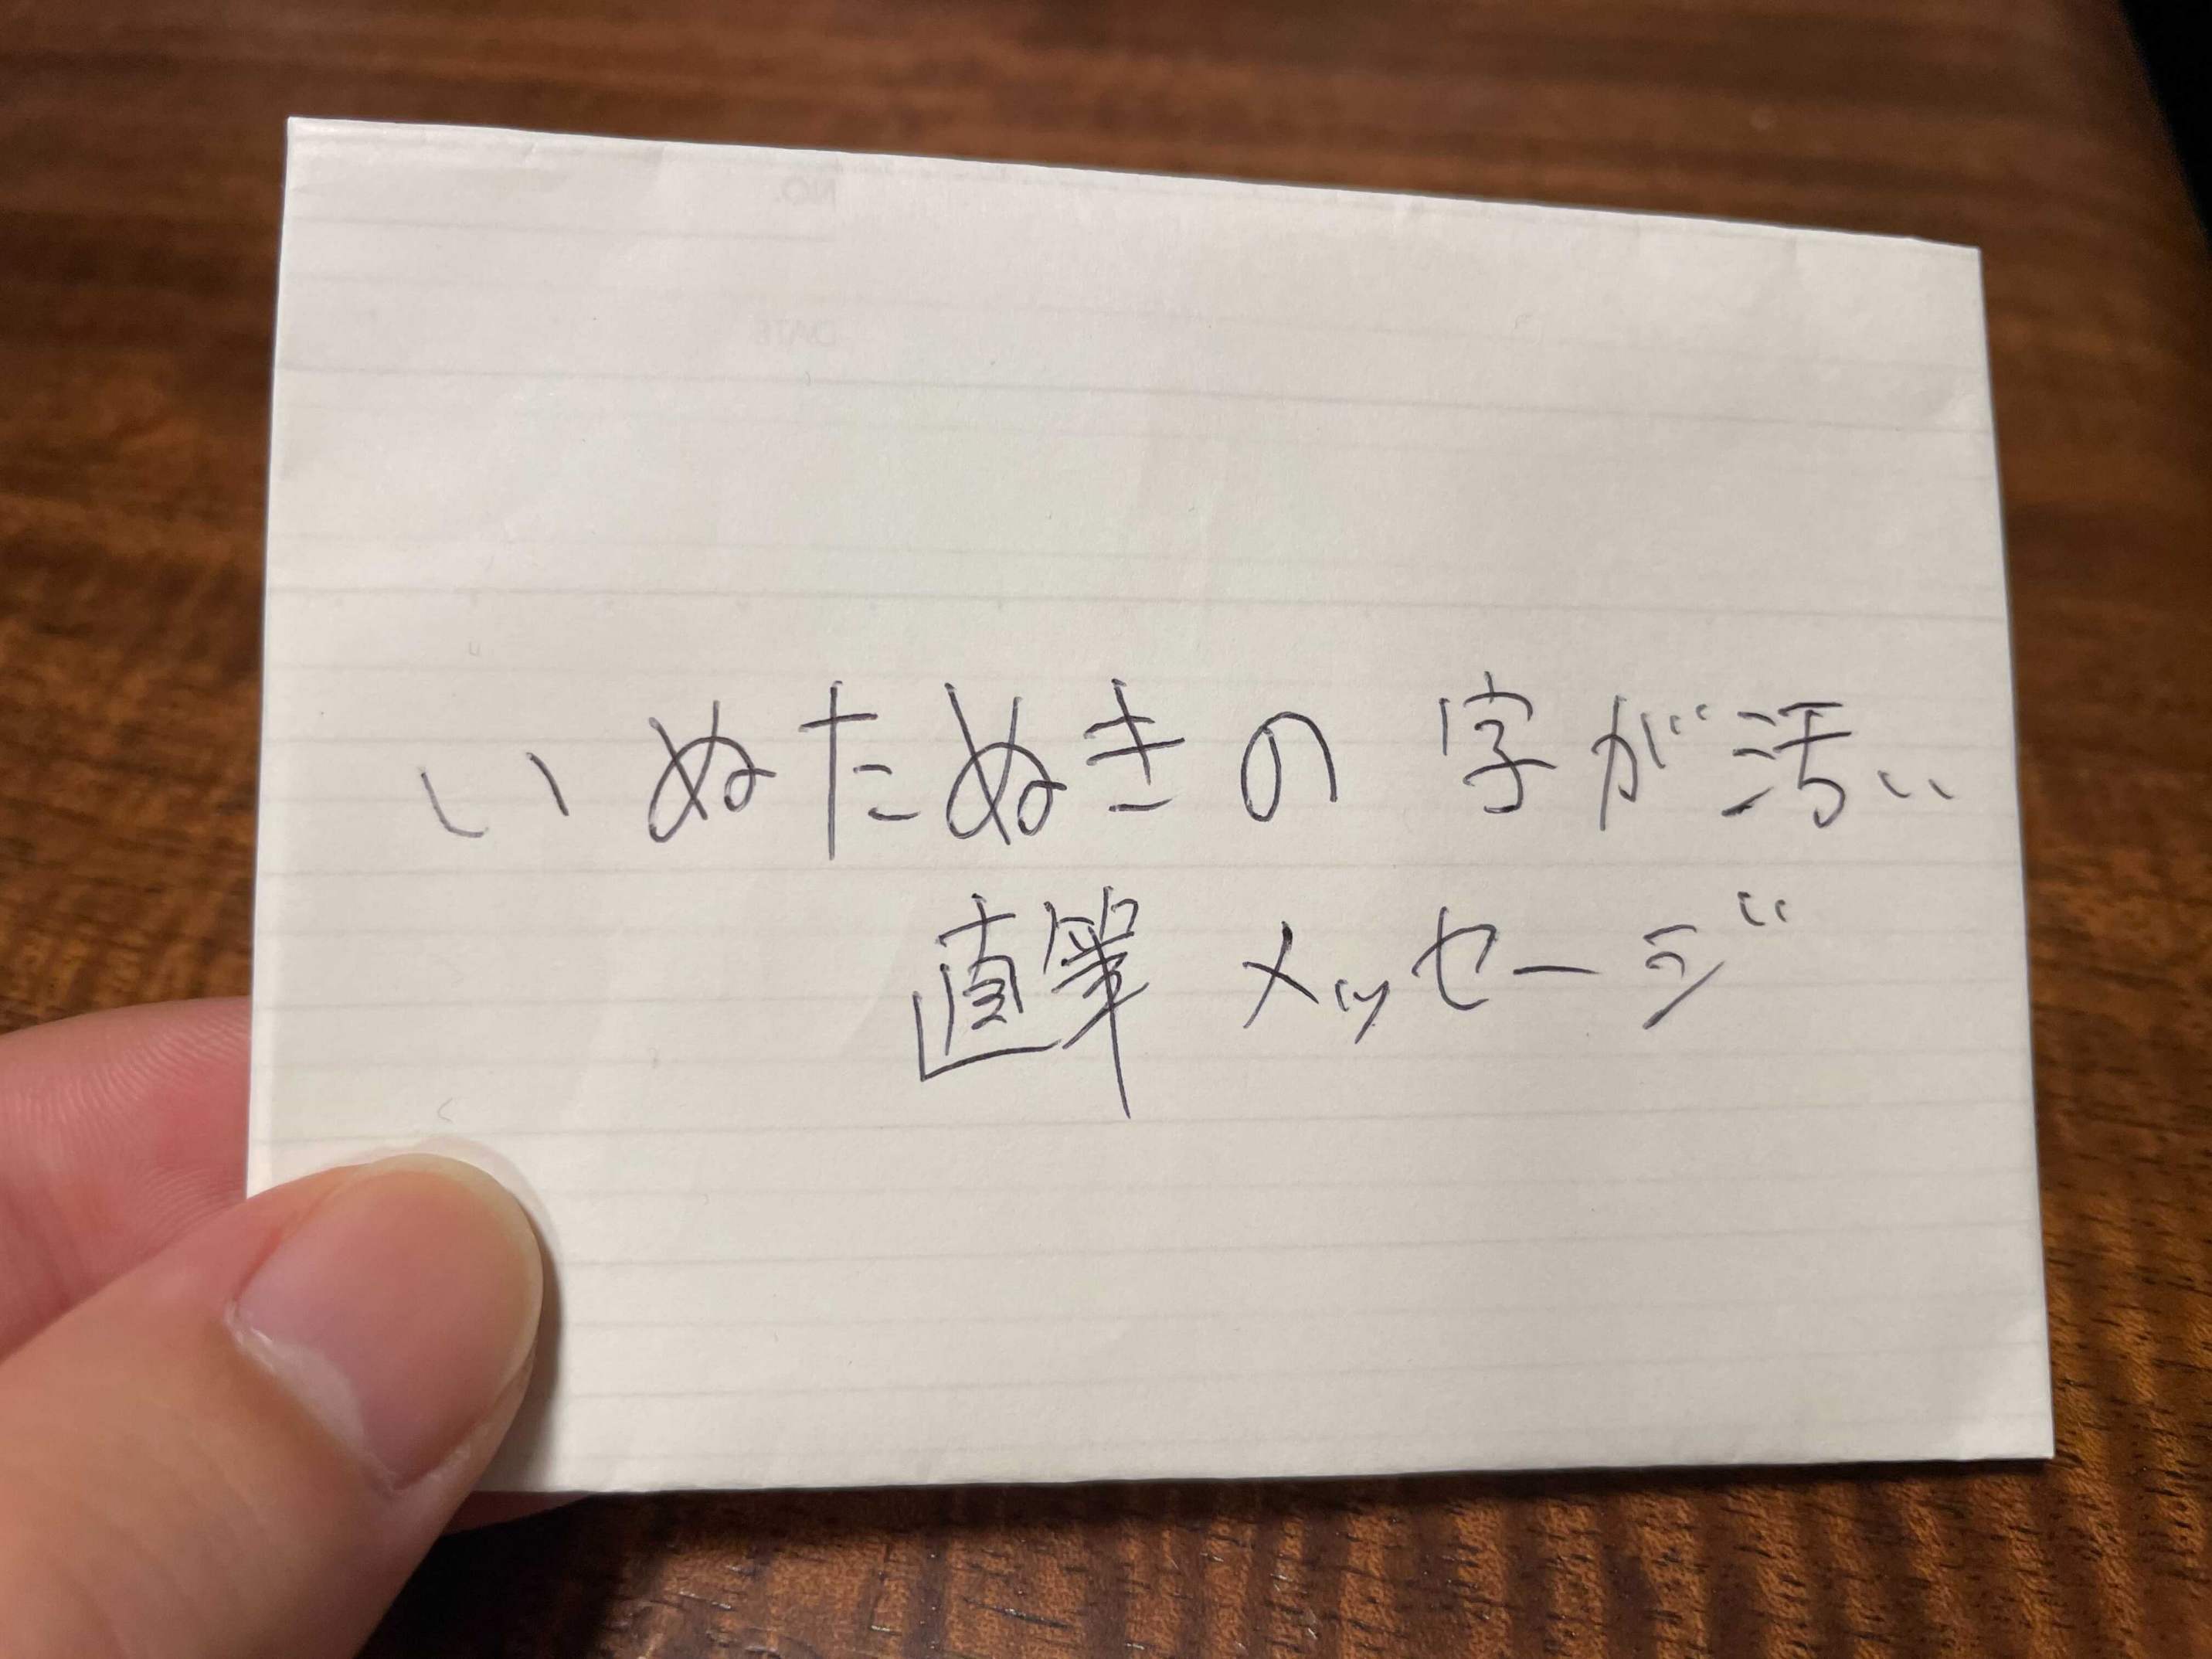 NO.
DATE
いぬたぬきの字が汚い
直筆メッセージ